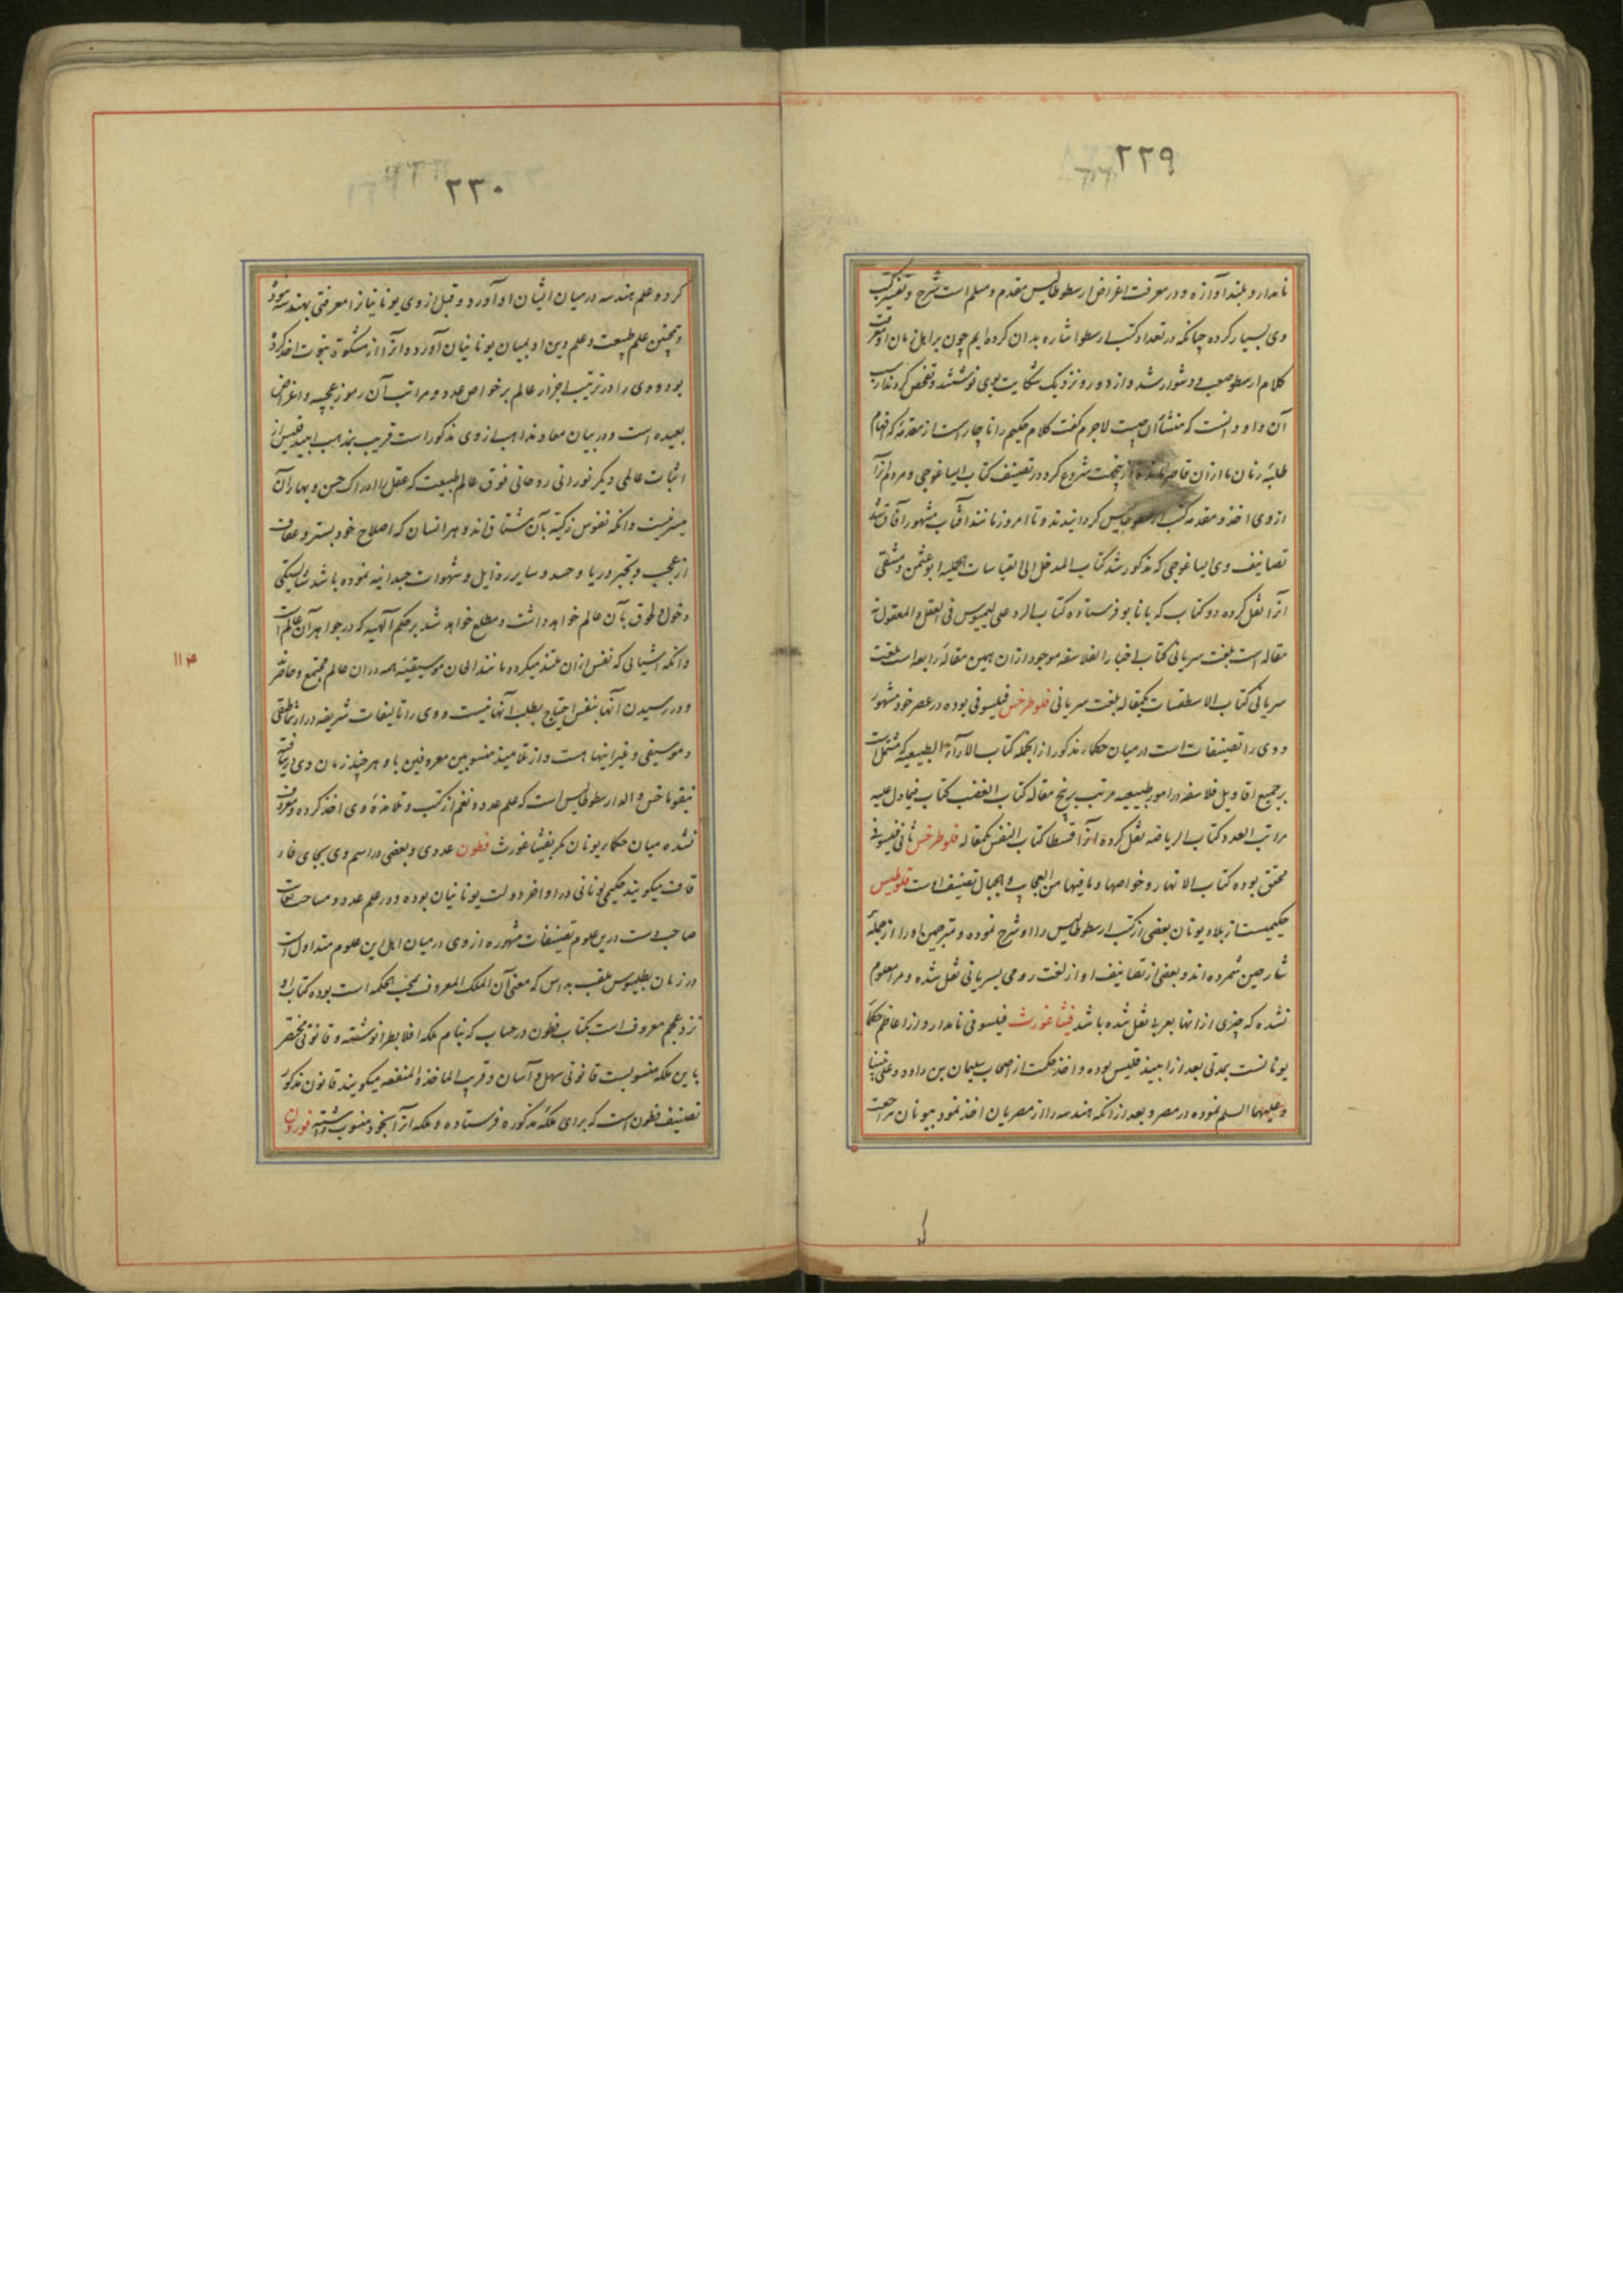 ۲۲۹
نامدار و بلند آوازه و در معرفت اغراض ارسطوطالیس مقدم و مسلم است شرح و تفسیر کتب
وی بسیار کرده چنانکه در تعداد کتب ارسطو اشاره بدان کرده ایم چون بر اهل زمان او معرفت
کلام ارسطو صعب و دشوار شد و از دور و نزدیک شکایت بوی نوشتند و تفحص کردند از سبب
آن و او دانست که منشأ آن چیست لاجرم گفت کلام حکیم را ناچار است از مقدمه که افهام
طلبهٔ زمان ما از آن قاصر شروع کرد در تصنیف کتاب ایساغوجی و مردم آنرا
از وی اخذ و مقدمه کتب ارسطوطالیس گردانیدند و تا امروز مانند آفتاب مشهور آفاق شد
تصانیف وی ایساغوجی که مذکور شد کتاب المدخل الی القیاسات الحملیه ابو عثمن دمشقی
آنرا نقل کرده دو کتاب که بانابو فرستاده کتاب الرد علی لیمیوس فی العقل و المعقول نه
مقاله است بلغت سریانی کتاب اخبار الفلاسفه موجود از آن همین مقالهٔ رابعه است بلغت
سریانی کتاب الاسطقسات یکمقاله بلغت سریانی فلوطرخس فیلسوفی بوده در عصر خود مشهور
و وی را تصنیفات است در میان حکما مذکور از انجمله کتاب الآراء الطبیعیه که مشتمل است
بر جمیع اقاویل فلاسفه در امور طبیعیه مرتب بر پنج مقاله کتاب الغضب کتاب فیما دل علیه
مراتب العدد کتاب الریاضه نقل کرده آنرا قسطا کتاب النفس یکمقاله فلوطرخس ثانی فیلسوفی
محقق بوده کتاب الانهار و خواصها و ما فیها من العجایب و الجبال تصنیف اوست فلوطیس
حکیمیست از بلاد یونان بعضی از کتب ارسطوطالیس را او شرح نموده و مترجمین او را از جملهٔ
شارحین شمرده اند و بعضی از تصانیف او از لغت رومی بسریانی نقل شده و مرا معلوم
نشده که چیزی از انها بعربی نقل شده باشد فیثاغورث فیلسوفی نامدار و از اعاظم حکما
یونانست بمدتی بعد از ابیندقلیس بوده و اخذ حکمت از اصحاب سلیمان بن داود و علی نبینا
و علیهما السلم نموده در مصر و بعد از انکه هندسه را از مصریان اخذ نمود بیونان مراجعت
۲۳۰
کرد و علم هندسه در میان ایشان او آورد و قبل از وی یونانیانرا معرفتی بهندسه نبود
و همچنین علم طبیعت و علم دین او بمیان یونانیان آورد و آنرا از مشکوة نبوت اخذ کرده
بود و وی را در ترتیب اجزاء عالم بر خواص عدد و مراتب آن رموز عجیبه و اغراض
بعیده است و در بیان معاد مذاهب از وی مذکور است قریب بمذهب ابیدقلیس از
اثبات عالمی دیگر نورانی روحانی فوق عالم طبیعت که عقل را ادراک حسن و بهاء آن
میسر نیست و آنکه نفوس زکیه بآن مشتاق اند و هر انسان که اصلاح خود بستر و عفاف
از عجب و تجبر و ریا و حسد و سایر رذایل و شهوات جسدانیه نموده باشد شایستگی
دخول و لحوق بآن عالم خواهد داشت و مطلع خواهد شد بر حکم الهیه که در جواهر آن عالم است
و آنکه اشیائی که نفس از آن ملتذ میگردد مانند الحان موسیقیه همه در ان عالم مجتمع و حاضر
و در رسیدن آنها بنفس احتیاج بطلب آنها نیست و وی را تالیفات شریفه در ارثماطیقی
و موسیقی و غیر اینها هست و از تلامیذ منسوبین معروفین باو هر چند زمان وی در نیافته
نیقوماخس والد ارسطوطالیس است که علم عدد و نغم از کتب و تلامذهٔ وی اخذ کرده و معروف
نشده میان حکماء یونان مگر بفیثاغورث فطون عددی و بعضی در اسم وی بجای فاء
قاف میگویند حکیمی یونانی در اواخر دولت یونانیان بوده و در علم عدد و مساحت
صاحب دست درین علوم تصنیفات مشهوره از وی در میان اهل این علوم متداول است
در زمان بطلیوس ملقب به اس که معنی آن الملک المعروف بمحب الحکمه است بوده کتاب او
نزد عجم معروف است بکتاب فطون در حساب که بنام ملکه اقلابطرا نوشته و قانونی مختصر
باین ملکه منسوبست قانونی سهل و آسان و قریب الماخذ و المنفعه میگویند قانون مذکور
تصنیف فطون است که برای ملکهٔ مذکوره فرستاده و ملکه آنرا بخود منسوب داشته فورون
۱۱۴